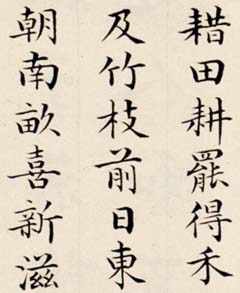 耤田耕罷得禾
及竹枝前日東
朝南畝喜新滋